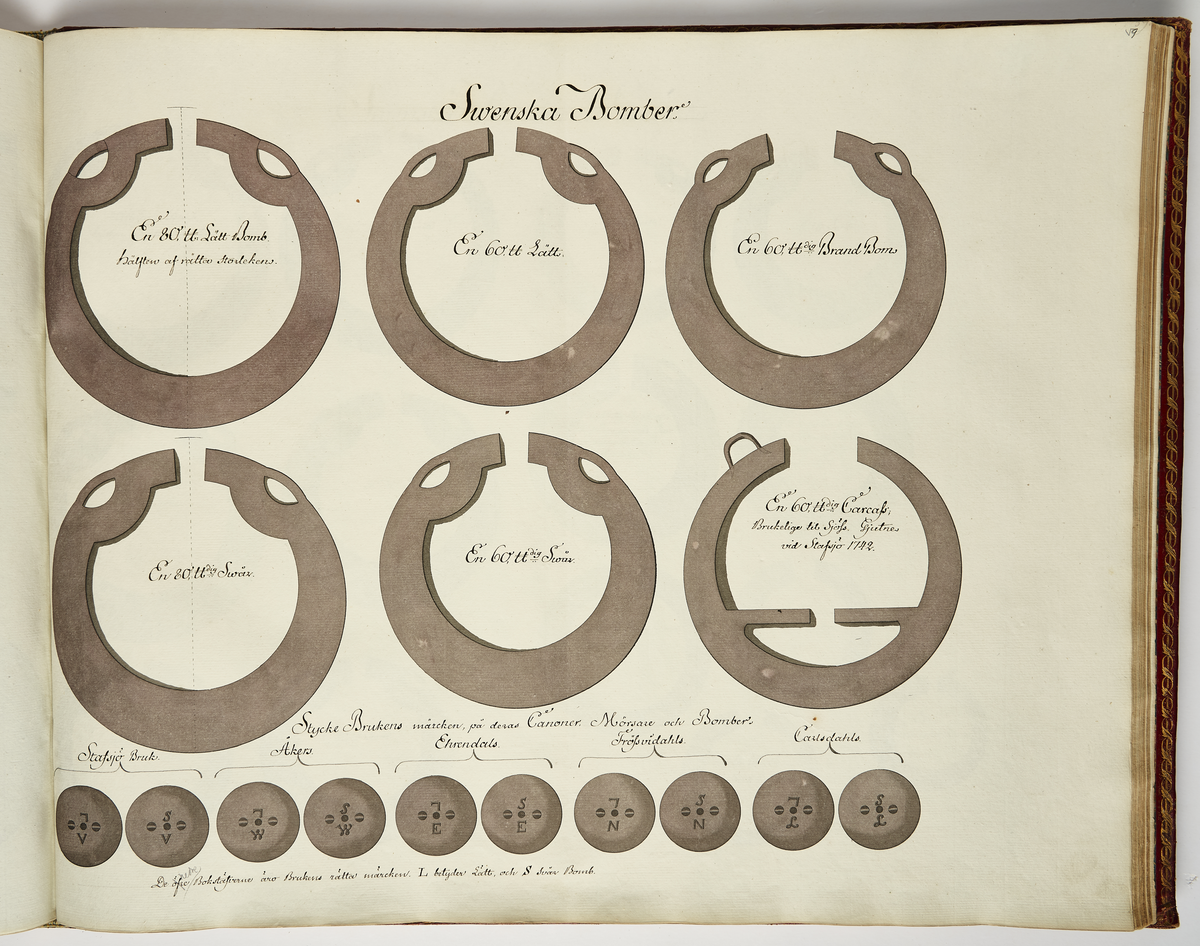 19
Swenska Bomber.
En 80. ₶ Lätt Bomb.
hälften af rätta storleken.
En 60. ₶ Lätt.
En 60. ₶dig Brand Bom
En 80. ₶dig Swår.
En 60. ₶dig Swår.
En 60. ₶dig Carcaß,
Brukelige til Sjöß. Gjutne
vid Stafsjö 1742.
Stycke Brukens märcken, på deras Canoner. Mörsare och Bomber.
Stafsjö Bruk.
Åkers.
Ehrendals.
Frößvidahls.
Carlsdahls.
L V
S V
L W
S W
L E
S E
L N
S N
L L
S L
De Bokstäfverne äro Brukens rätta märcken. L betyder Lätt, och S Svår Bomb.